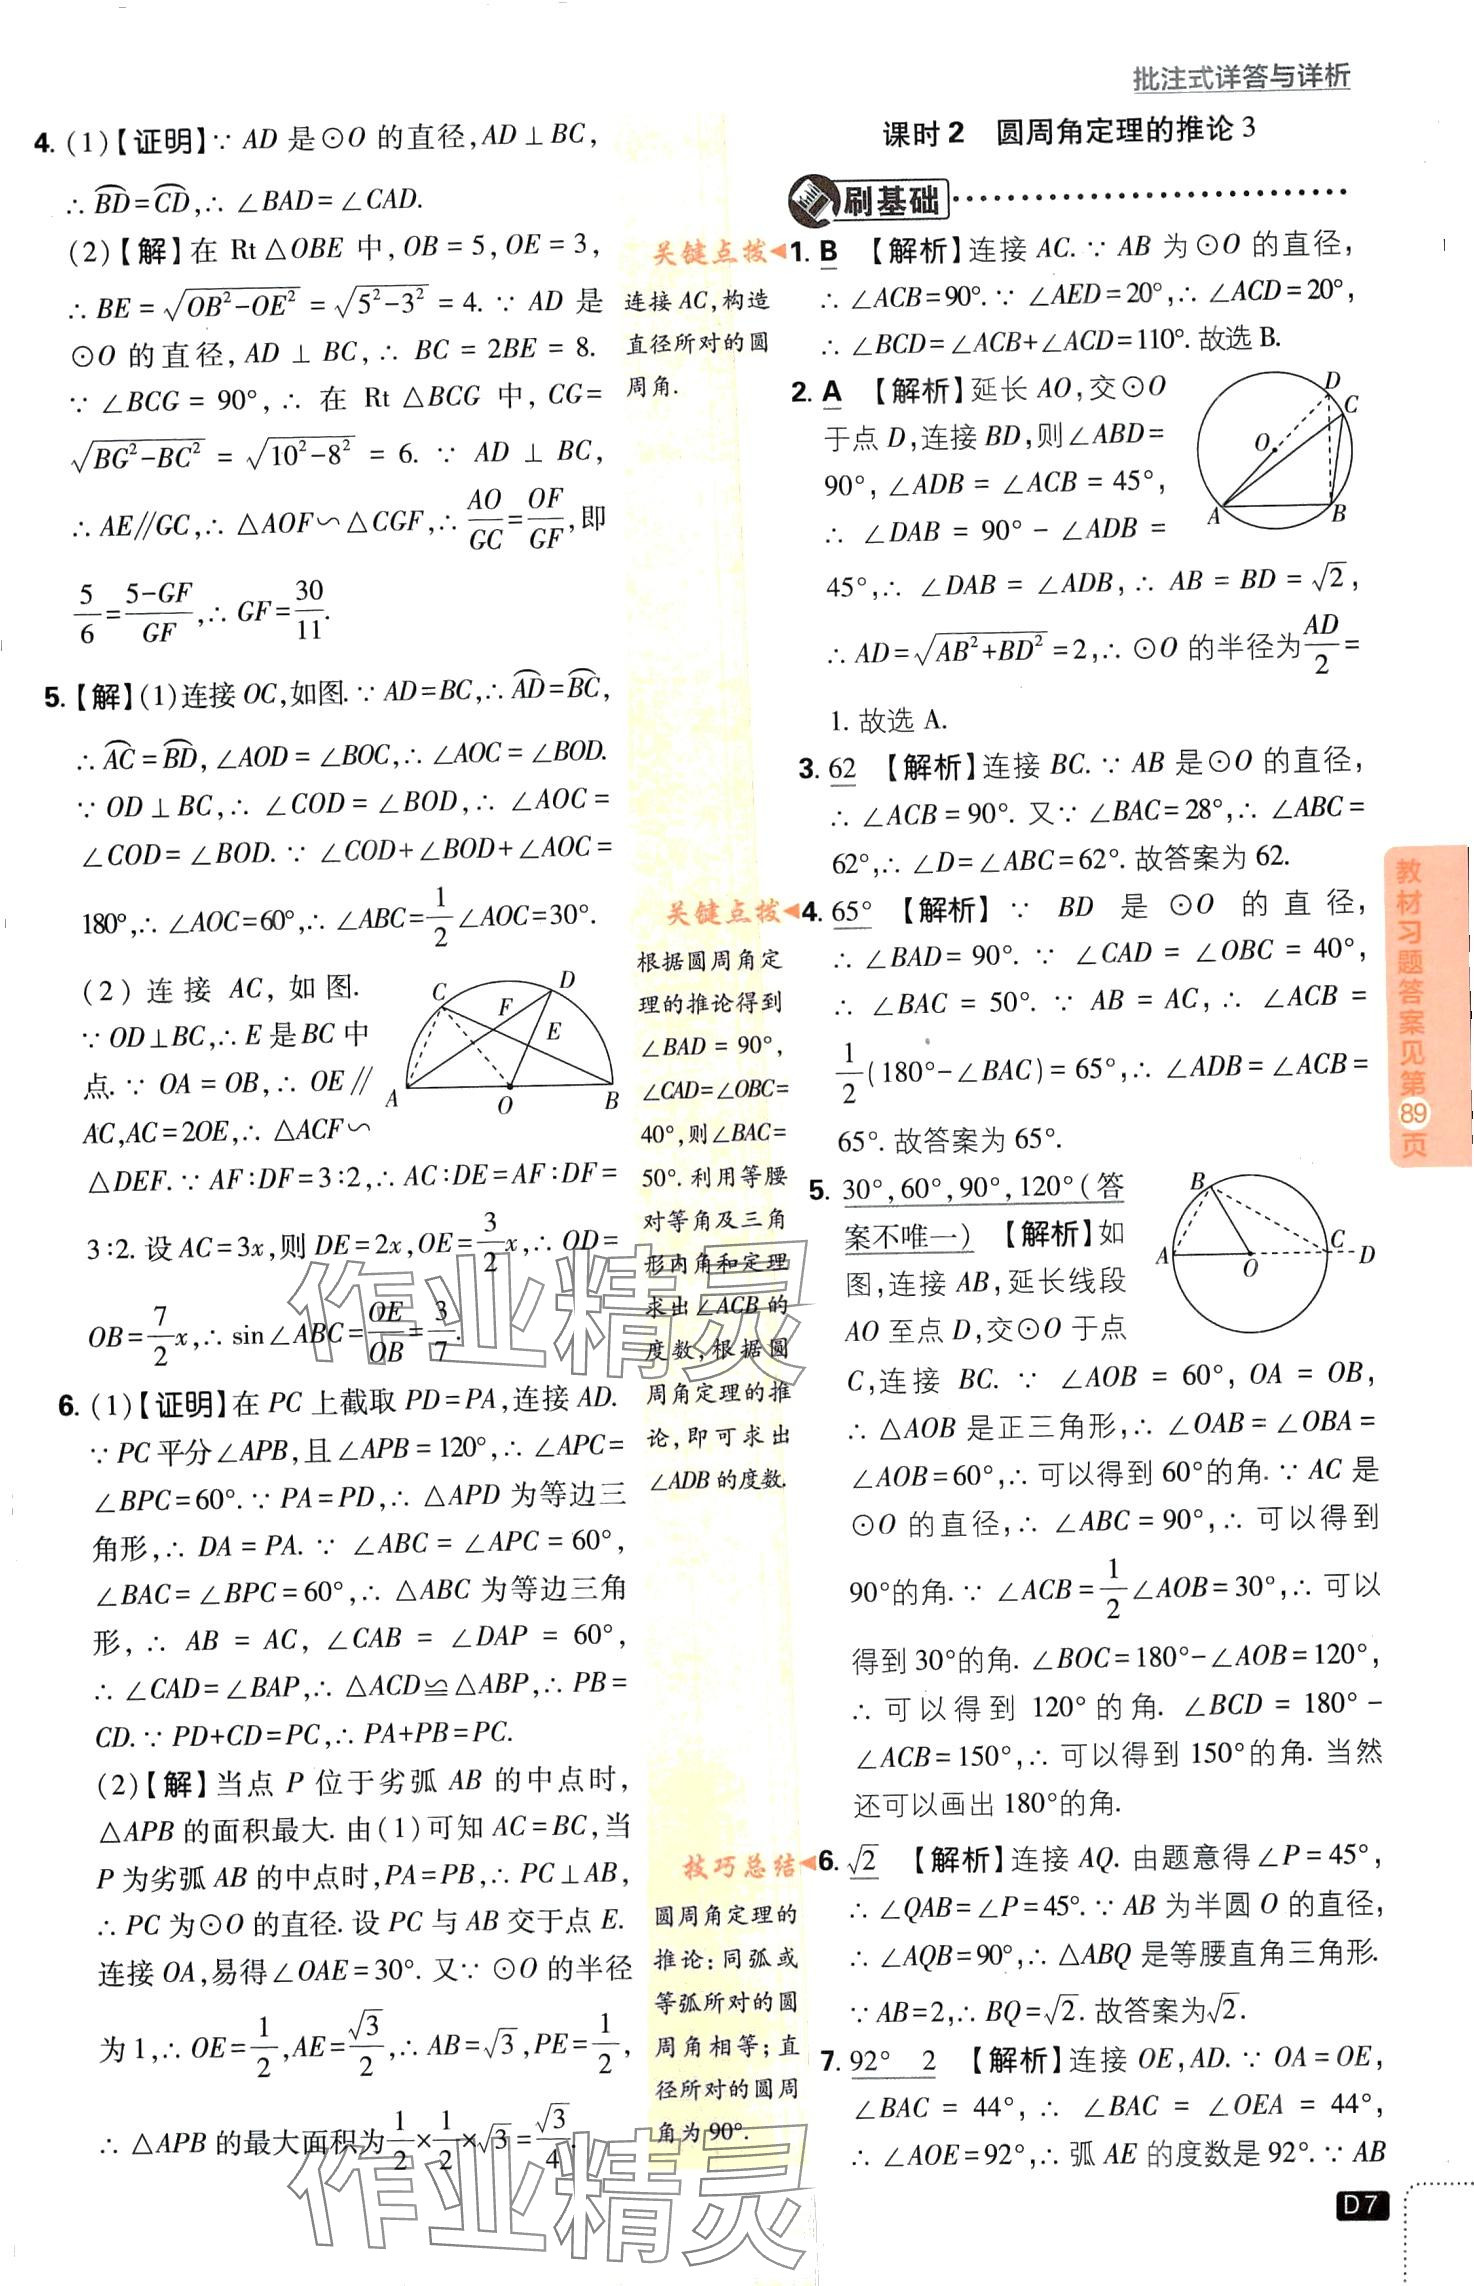 批注式详答与详析
4. (1)【证明】∵ AD 是⊙O 的直径, AD⊥BC,
∴ B͡D=C͡D,∴ ∠BAD=∠CAD.
(2)【解】在 Rt△OBE 中, OB=5, OE=3,
∴ BE=√(OB²-OE²)=√(5²-3²)=4. ∵ AD 是
⊙O 的直径, AD⊥BC,∴ BC=2BE=8.
∵ ∠BCG=90°,∴ 在 Rt△BCG 中, CG=
√(BG²-BC²)=√(10²-8²)=6. ∵ AD⊥BC,
∴ AE∥GC,∴ △AOF∽△CGF,∴ AO/GC=OF/GF,即
5/6=(5-GF)/GF,∴ GF=30/11.
5.【解】(1)连接 OC,如图. ∵ AD=BC,∴ A͡D=B͡C,
∴ A͡C=B͡D, ∠AOD=∠BOC,∴ ∠AOC=∠BOD.
∵ OD⊥BC,∴ ∠COD=∠BOD,∴ ∠AOC=
∠COD=∠BOD. ∵ ∠COD+∠BOD+∠AOC=
180°,∴ ∠AOC=60°,∴ ∠ABC=1/2∠AOC=30°.
(2) 连接 AC, 如图.
∵ OD⊥BC,∴ E 是 BC 中
点. ∵ OA=OB,∴ OE∥
AC, AC=2OE,∴ △ACF∽
△DEF. ∵ AF∶DF=3∶2,∴ AC∶DE=AF∶DF=
3∶2. 设 AC=3x,则 DE=2x, OE=3/2x,∴ OD=
OB=7/2x,∴ sin∠ABC=OE/OB=3/7.
C F D E A O B
6. (1)【证明】在 PC 上截取 PD=PA,连接 AD.
∵ PC 平分∠APB,且∠APB=120°,∴ ∠APC=
∠BPC=60°. ∵ PA=PD,∴ △APD 为等边三
角形,∴ DA=PA. ∵ ∠ABC=∠APC=60°,
∠BAC=∠BPC=60°,∴ △ABC 为等边三角
形,∴ AB=AC, ∠CAB=∠DAP=60°,
∴ ∠CAD=∠BAP,∴ △ACD≌△ABP,∴ PB=
CD. ∵ PD+CD=PC,∴ PA+PB=PC.
(2)【解】当点 P 位于劣弧 AB 的中点时,
△APB 的面积最大. 由(1)可知 AC=BC,当
P 为劣弧 AB 的中点时, PA=PB,∴ PC⊥AB,
∴ PC 为⊙O 的直径. 设 PC 与 AB 交于点 E.
连接 OA,易得∠OAE=30°. 又∵ ⊙O 的半径
为 1,∴ OE=1/2, AE=√3/2,∴ AB=√3, PE=1/2,
∴ △APB 的最大面积为1/2×1/2×√3=√3/4.
关键点拨
连接 AC,构造
直径所对的圆
周角.
关键点拨
根据圆周角定
理的推论得到
∠BAD=90°,
∠CAD=∠OBC=
40°,则∠BAC=
50°. 利用等腰
对等角及三角
形内角和定理
求出∠ACB 的
度数,根据圆
周角定理的推
论,即可求出
∠ADB 的度数.
技巧总结
圆周角定理的
推论:同弧或
等弧所对的圆
周角相等;直
径所对的圆周
角为 90°.
课时 2 圆周角定理的推论 3
刷基础
1. B 【解析】连接 AC. ∵ AB 为⊙O 的直径,
∴ ∠ACB=90°. ∵ ∠AED=20°,∴ ∠ACD=20°,
∴ ∠BCD=∠ACB+∠ACD=110°. 故选 B.
2. A 【解析】延长 AO,交⊙O
于点 D,连接 BD,则∠ABD=
90°, ∠ADB=∠ACB=45°,
∴ ∠DAB=90°-∠ADB=
45°,∴ ∠DAB=∠ADB,∴ AB=BD=√2,
∴ AD=√(AB²+BD²)=2,∴ ⊙O 的半径为AD/2=
1. 故选 A.
D C O A B
3. 62 【解析】连接 BC. ∵ AB 是⊙O 的直径,
∴ ∠ACB=90°. 又∵ ∠BAC=28°,∴ ∠ABC=
62°,∴ ∠D=∠ABC=62°. 故答案为 62.
4. 65° 【解析】∵ BD 是⊙O 的直径,
∴ ∠BAD=90°. ∵ ∠CAD=∠OBC=40°,
∴ ∠BAC=50°. ∵ AB=AC,∴ ∠ACB=
1/2(180°-∠BAC)=65°,∴ ∠ADB=∠ACB=
65°. 故答案为 65°.
5. 30°, 60°, 90°, 120°(答
案不唯一) 【解析】如
图,连接 AB,延长线段
AO 至点 D,交⊙O 于点
C,连接 BC. ∵ ∠AOB=60°, OA=OB,
∴ △AOB 是正三角形,∴ ∠OAB=∠OBA=
∠AOB=60°,∴ 可以得到 60°的角. ∵ AC 是
⊙O 的直径,∴ ∠ABC=90°,∴ 可以得到
90°的角. ∵ ∠ACB=1/2∠AOB=30°,∴ 可以
得到 30°的角. ∠BOC=180°-∠AOB=120°,
∴ 可以得到 120°的角. ∠BCD=180°-
∠ACB=150°,∴ 可以得到 150°的角. 当然
还可以画出 180°的角.
B A O C D
6. √2 【解析】连接 AQ. 由题意得∠P=45°,
∴ ∠QAB=∠P=45°. ∵ AB 为半圆 O 的直径,
∴ ∠AQB=90°,∴ △ABQ 是等腰直角三角形.
∵ AB=2,∴ BQ=√2. 故答案为√2.
7. 92° 2 【解析】连接 OE, AD. ∵ OA=OE,
∠BAC=44°,∴ ∠BAC=∠OEA=44°,
∴ ∠AOE=92°,∴ 弧 AE 的度数是 92°. ∵ AB
教材习题答案见第89页
D7
作业精灵
作业精灵